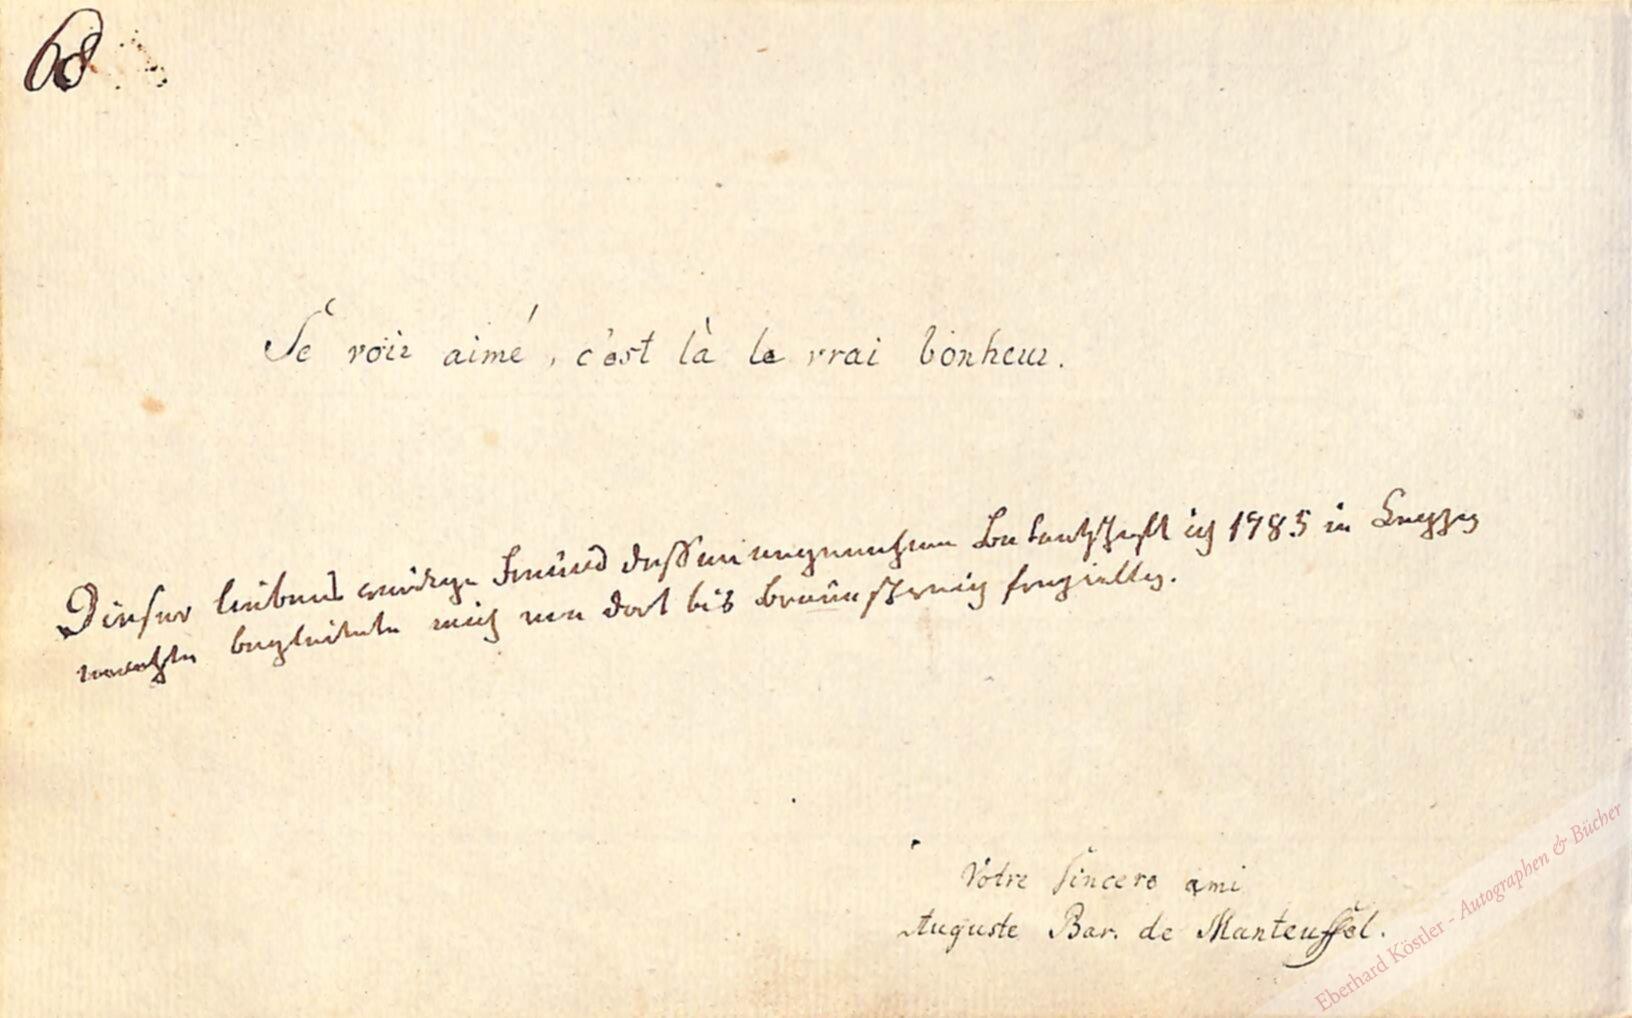 68
Se voir aimé, c'est là le vrai bonheur.
Dieser liebenswürdige Freund dessen angenehme Bekantschafft ich 1785 in Leipzig
machte begleitete mich von dort bis Braunschweig
Votre sincere ami
Auguste Bar. de Manteuffel.
Eberhard Köstler - Autographen & Bücher